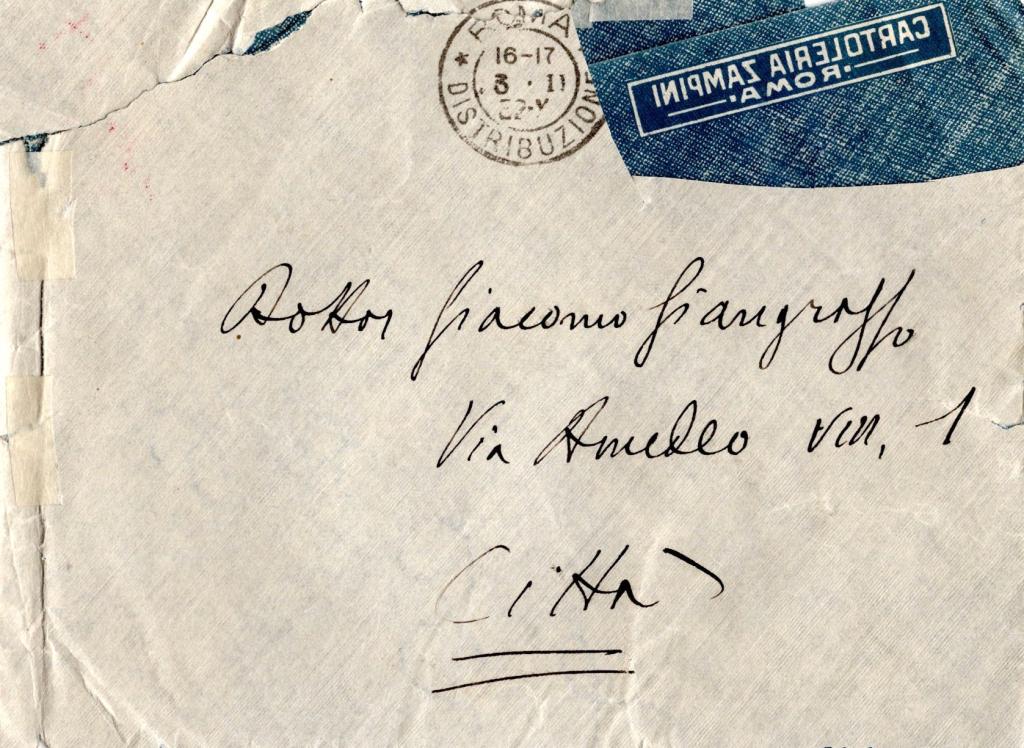 ROMA
16-17
DISTRIBUZIONE
CARTOLERIA ZAMPINI
·ROMA·
Dottor Giacomo Giangrosso
Via Amedeo VIII, 1
Città